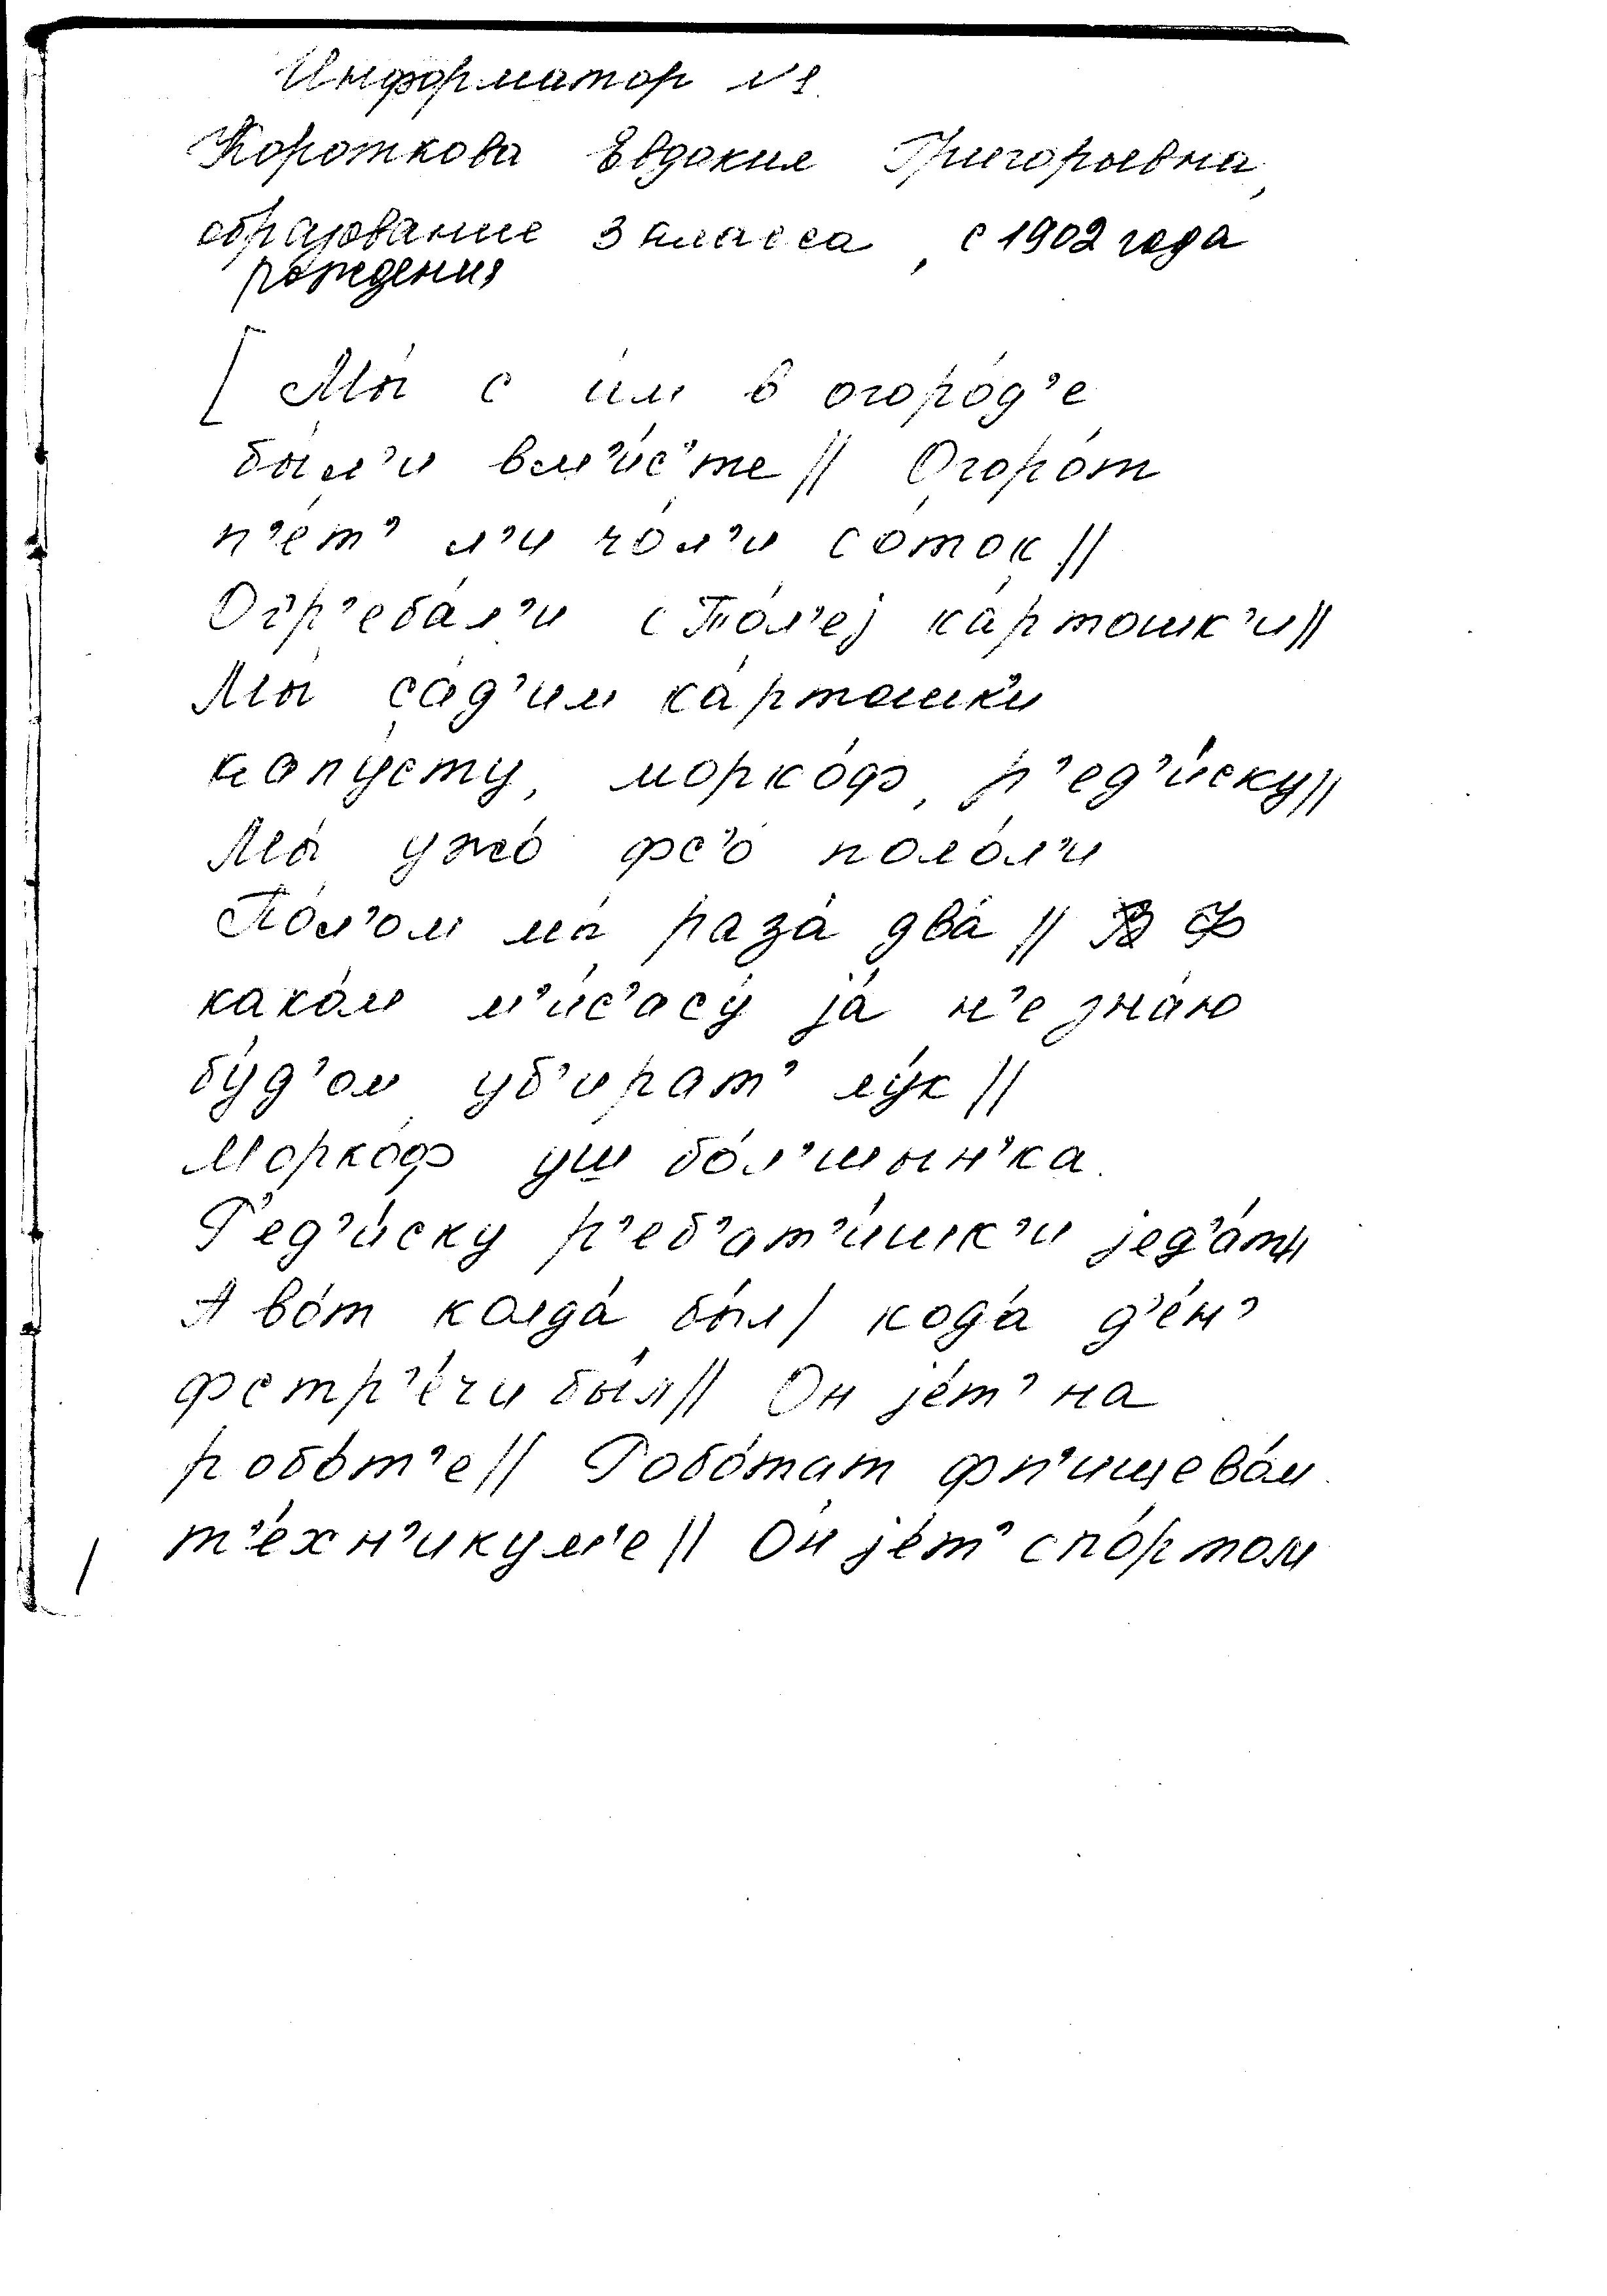 Информатор №1.
Короткова Евдокия Григорьевна,
образование 3 класса, с 1902 года
рождения
[ Мы́ с и́м в огоро́д'е
бы́л'и вм'и́с'те // Огоро́т
п'е́т' л'и чо́л'и со́ток //
Огр'еба́л'и с То́л'еj ка́ртошк'и //
Мы́ са́д'им ка́ртошк'и
капу́сту, морко́ф, р'ед'и́ску //
Мы́ ужо́ фс'о́ поло́л'и
По́л'ом мы́ раза́ два́ // Ф
како́м м'и́с'асу́ jа́ н'е зна́ю
бу́д'ом уб'ират' лу́к //
Морко́ф уш бо́л'шын'ка.
Р'ед'и́ску р'еб'ат'и́шк'и jед'а́т //
А во́т колда́ бы́л / кода́ д'е́н'
фстр'е́чи бы́л // Он jе́т' на
робо́т'е // Робо́тат фп'ищево́м
т'е́хн'икум'е // О́н jе́т' спо́ртом